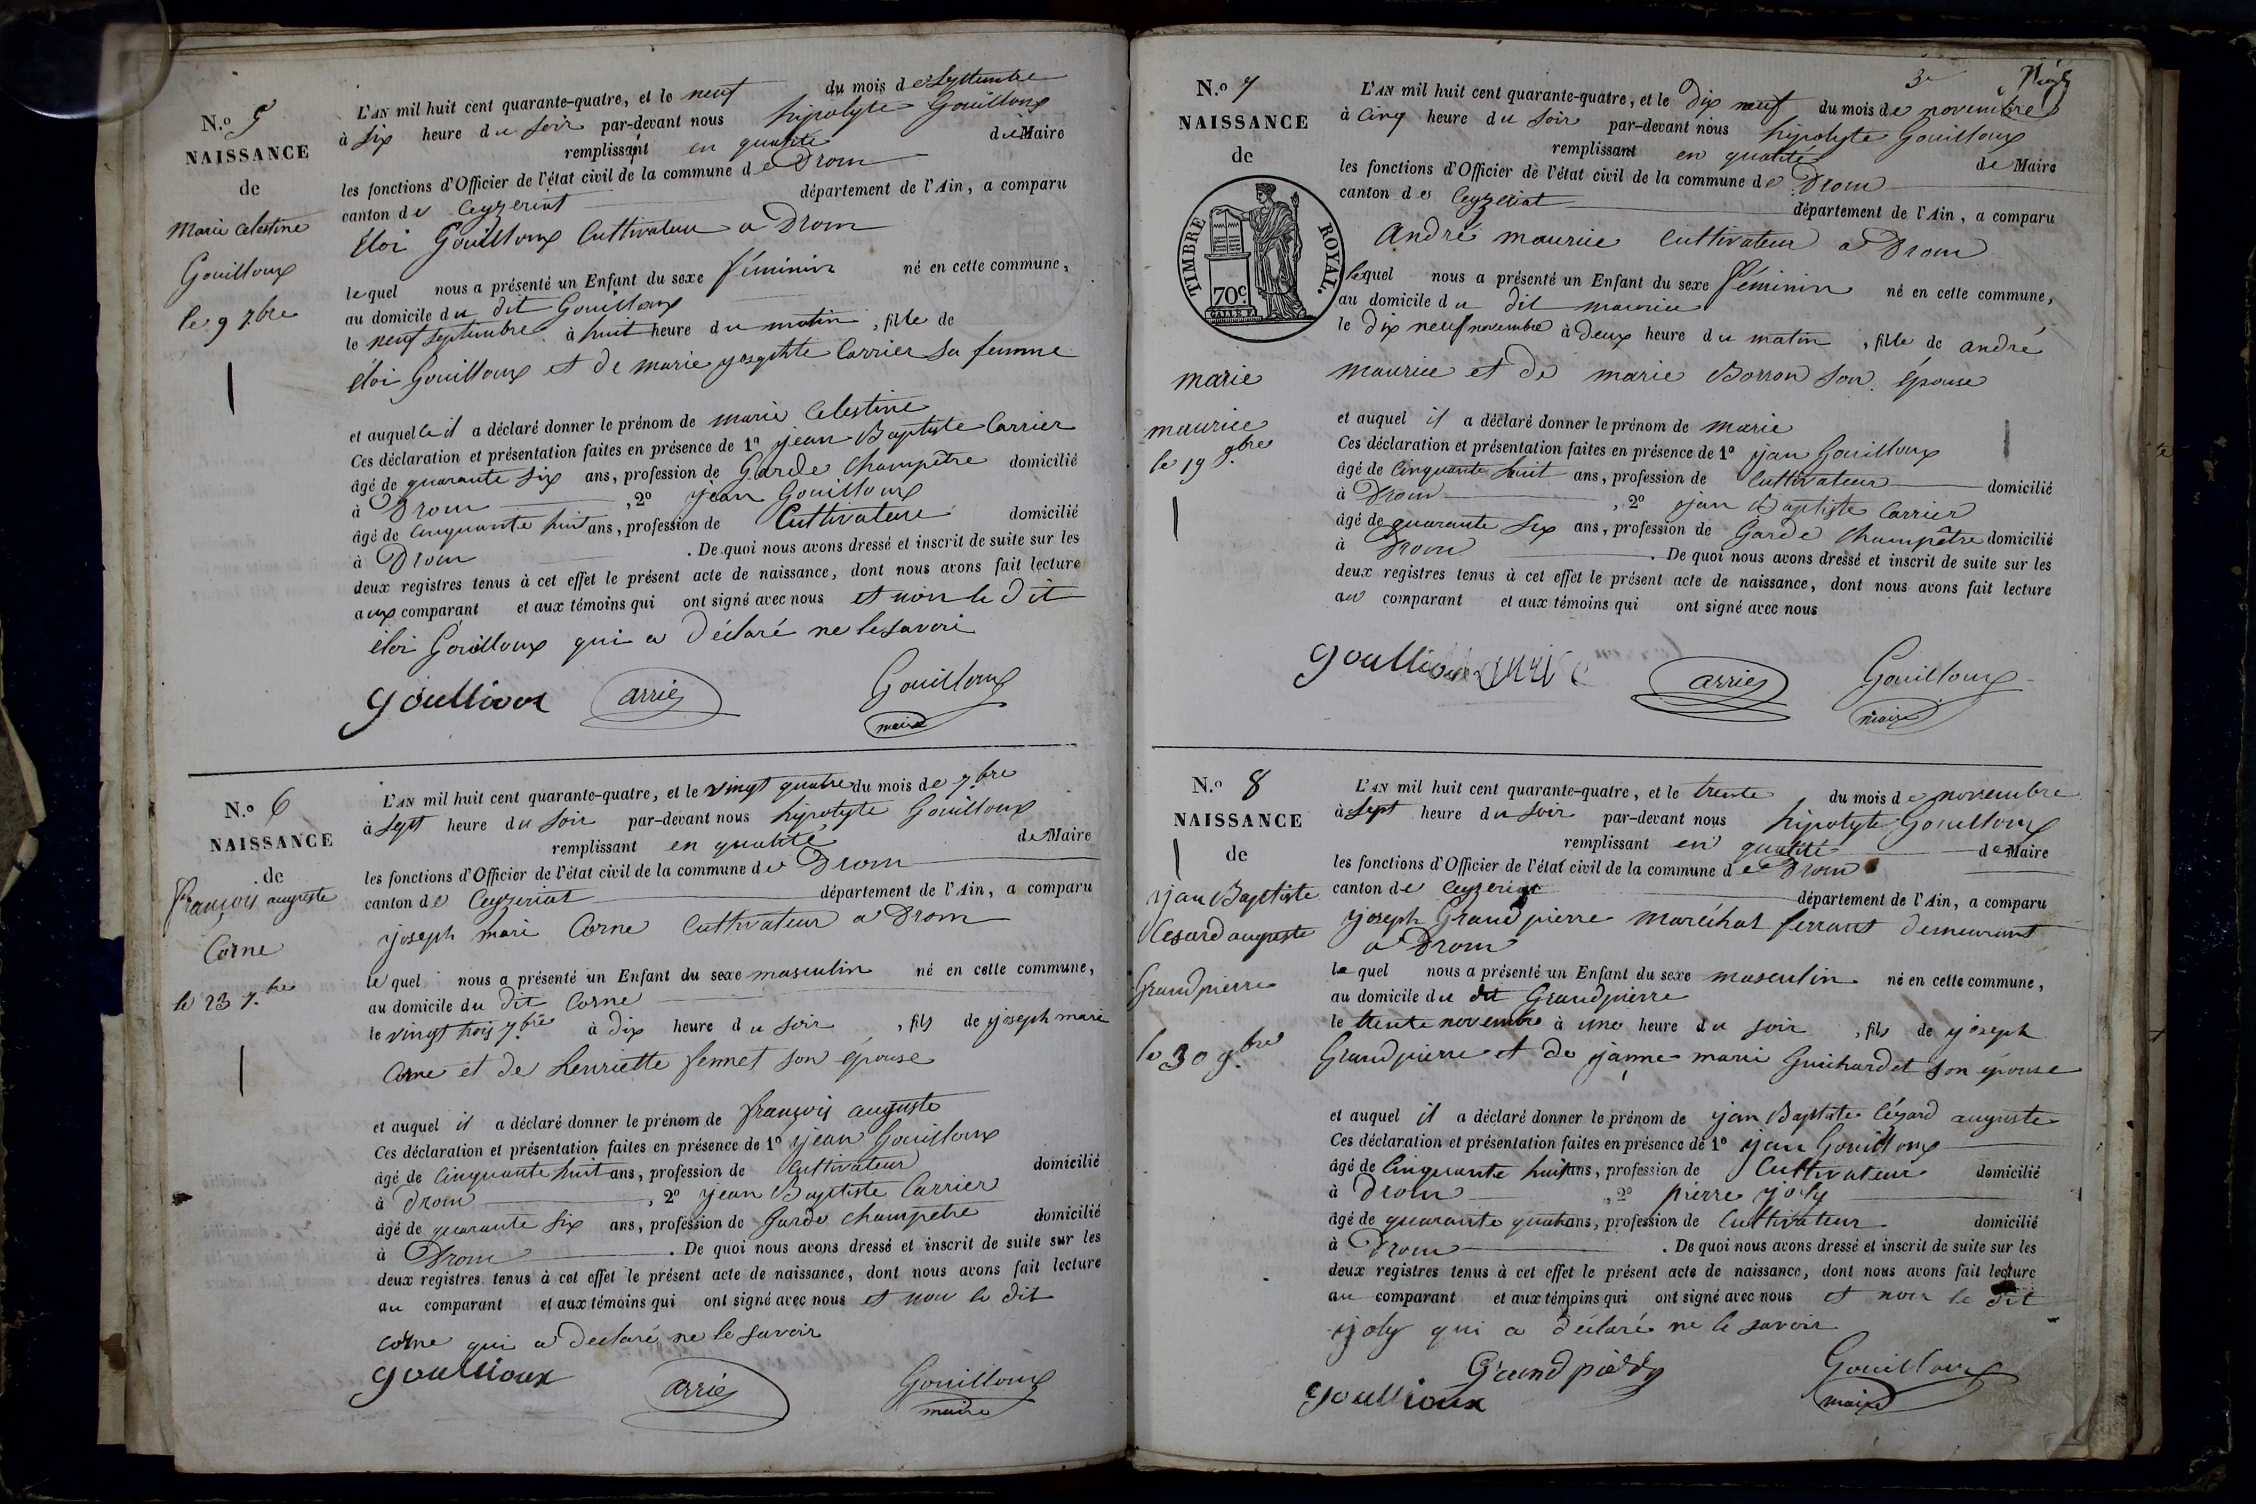 N.o 5
NAISSANCE
de
Marie Celestine
Gouilloux
le 9 7.bre
L'AN mil huit cent quarante-quatre, et le neuf du mois de Septembre
à Six heure du Soir par-devant nous hipolyte Gouilloux
remplissant en qualité de Maire
les fonctions d'Officier de l'état civil de la commune de Drom
canton de Ceyzeriat département de l'Ain, a comparu
Eloi Gouilloux Cultivateur a Drom
lequel nous a présenté un Enfant du sexe féminin né en cette commune,
au domicile du dit Gouilloux
le neuf Septembre à huit heure du matin, fille de
éloi Gouilloux et de marie josephte Carrier Sa femme
et auquelle il a déclaré donner le prénom de marie Celestine
Ces déclaration et présentation faites en présence de 1o jean Baptiste Carrier
âgé de quarante Six ans, profession de Garde Champêtre domicilié
à Drom, 2o jean Gouilloux
âgé de Cinquante huit ans, profession de Cultivateur domicilié
à Drom. De quoi nous avons dressé et inscrit de suite sur les
deux registres tenus à cet effet le présent acte de naissance, dont nous avons fait lecture
aux comparant et aux témoins qui ont signé avec nous et non le dit
éloi Gouilloux qui a déclaré ne le savoir
Goullioux arrier Gouilloux
maire
N.o 6
NAISSANCE
de
françois auguste
Corne
le 23 7.bre
L'AN mil huit cent quarante-quatre, et le vingt quatre du mois de 7.bre
à Sept heure du Soir par-devant nous hipolyte Gouilloux
remplissant en qualité de Maire
les fonctions d'Officier de l'état civil de la commune de Drom
canton de Ceyzeriat département de l'Ain, a comparu
joseph mari Corne Cultivateur a Drom
lequel nous a présenté un Enfant du sexe masculin né en cette commune,
au domicile du dit Corne
le vingt trois 7.bre à dix heure du soir, fils de joseph mari
Corne et de henriette fennet son épouse
et auquel il a déclaré donner le prénom de françois auguste
Ces déclaration et présentation faites en présence de 1o jean Gouilloux
âgé de Cinquante huit ans, profession de Cultivateur domicilié
à Drom, 2o jean Baptiste Carrier
âgé de quarante Six ans, profession de Garde Champetre domicilié
à Drom. De quoi nous avons dressé et inscrit de suite sur les
deux registres tenus à cet effet le présent acte de naissance, dont nous avons fait lecture
au comparant et aux témoins qui ont signé avec nous et non le dit
Corne qui a declaré ne le savoir
Goullioux arrier Gouilloux
maire
3e
N.o 7
NAISSANCE
de
TIMBRE ROYAL.
70c
marie
maurice
le 19 9.bre
L'AN mil huit cent quarante-quatre, et le Dix neuf du mois de novembre
à Cinq heure du Soir par-devant nous hipolyte Gouilloux
remplissant en qualité de Maire
les fonctions d'Officier de l'état civil de la commune de Drom
canton de Ceyzeriat département de l'Ain, a comparu
André maurice Cultivateur a Drom
lequel nous a présenté un Enfant du sexe féminin né en cette commune,
au domicile du dit maurice
le dix neuf novembre à Deux heure du matin, fille de andré
maurice et de marie Borron Son épouse
et auquel il a déclaré donner le prénom de marie
Ces déclaration et présentation faites en présence de 1o jean Gouilloux
âgé de Cinquante huit ans, profession de Cultivateur domicilié
à Drom, 2o jean Baptiste Carrier
âgé de quarante Six ans, profession de Garde Champêtre domicilié
à Drom. De quoi nous avons dressé et inscrit de suite sur les
deux registres tenus à cet effet le présent acte de naissance, dont nous avons fait lecture
au comparant et aux témoins qui ont signé avec nous
arrier Gouilloux
maire
N.o 8
NAISSANCE
de
jean Baptiste
Cesard auguste
Grandpierre
le 30 9.bre
L'AN mil huit cent quarante-quatre, et le trente du mois de novembre
à Sept heure du Soir par-devant nous hipolyte Gouilloux
remplissant en qualité de Maire
les fonctions d'Officier de l'état civil de la commune de Drom
canton de Ceyzeriat département de l'Ain, a comparu
joseph Grandpierre maréchal ferrant demeurant
a Drom
lequel nous a présenté un Enfant du sexe masculin né en cette commune,
au domicile du dit Grandpierre
le trente novembre à une heure du soir, fils de joseph
Grandpierre et de janne marie Guichardet Son épouse
et auquel il a déclaré donner le prénom de jean Baptiste Cézard auguste
Ces déclaration et présentation faites en présence de 1o jean Gouilloux
âgé de Cinquante huit ans, profession de Cultivateur domicilié
à Drom, 2o pierre joly
âgé de quarante quatre ans, profession de Cultivateur domicilié
à Drom. De quoi nous avons dressé et inscrit de suite sur les
deux registres tenus à cet effet le présent acte de naissance, dont nous avons fait lecture
au comparant et aux témoins qui ont signé avec nous et non le dit
joly qui a déclaré ne le savoir
Grandpierre Gouilloux
Goullioux maire